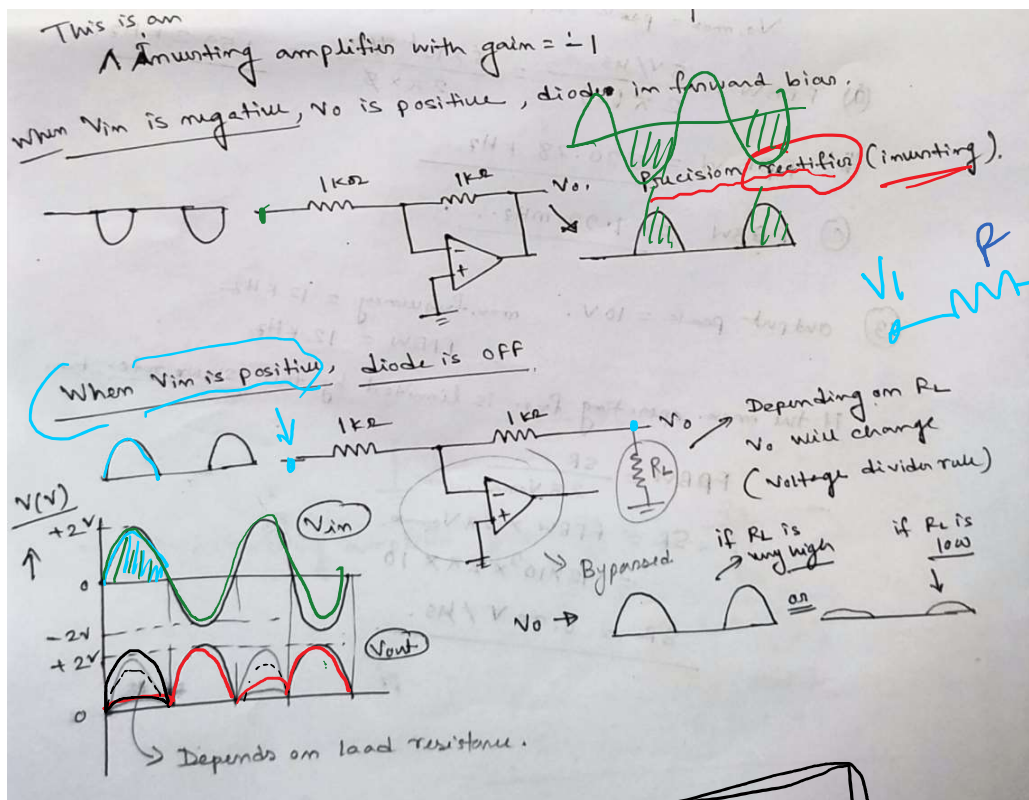 This is an
^ Inverting amplifier with gain = -1
When Vin is negative, Vo is positive, diode in forward bias.
Precision rectifier (inverting).
1kΩ
1kΩ
Vo.
-
+
R
V1
When Vin is positive, diode is OFF
1kΩ
1kΩ
Vo
RL
-
+
Depending on RL
Vo will change
(voltage divider rule)
V(V)
+2V
0
-2V
Vin
Bypassed
if RL is
very high
or
if RL is
low
Vo →
+2V
0
Vout
Depends on load resistance.